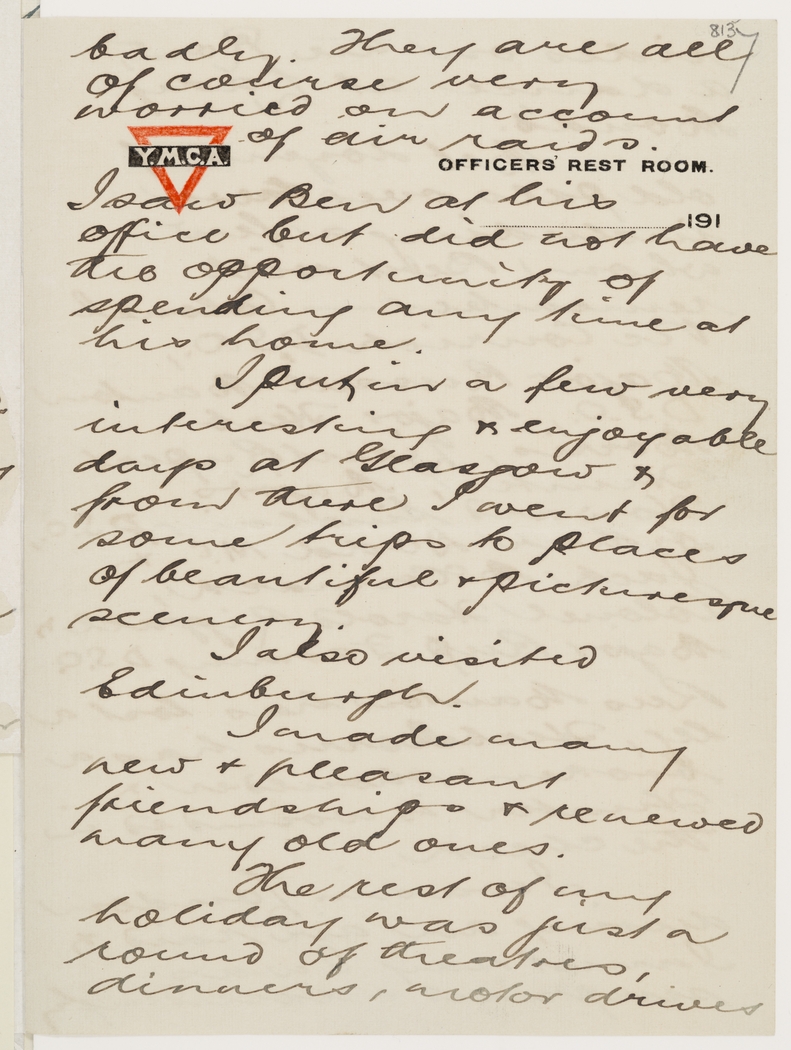 813
badly. They are all
of course very
worried on account
of air raids.
Y.M.C.A
OFFICERS' REST ROOM.
I saw Ben at his
191
office but did not have
the opportunity of
spending any time at
his home.
I put in a few very
interesting & enjoyable
days at Glasgow &
from there I went for
some trips to places
of beautiful & picturesque
scenery.
I also visited
Edinburgh.
I made many
new & pleasant
friendships & renewed
many old ones.
The rest of my
holiday was just a
round of theatres,
dinners, motor drives